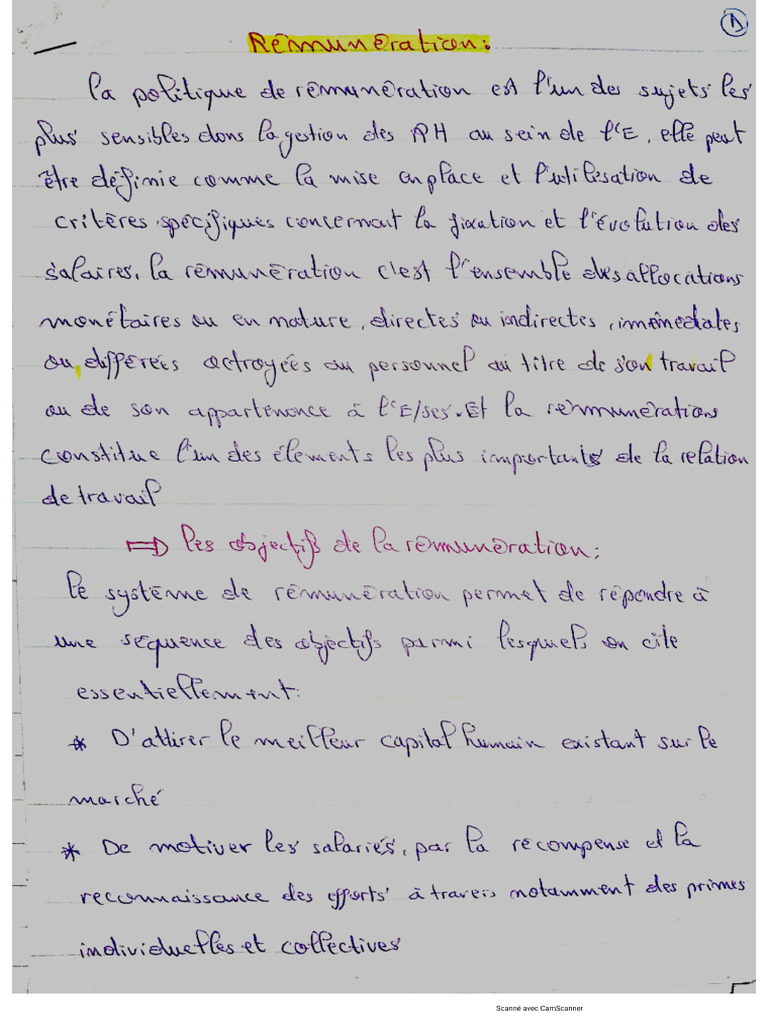 1
Rémunération :
la politique de rémunération est l'un des sujets les
plus sensibles dans la gestion des RH au sein de l'E, elle peut
être définie comme la mise en place et l'utilisation de
critères spécifiques concernant la fixation et l'évolution des
salaires, la rémunération c'est l'ensemble des allocations
monétaires ou en nature, directes ou indirectes, immédiates
ou, différées octroyées au personnel au titre de son travail
ou de son appartenance à l'E/ses. Et la rémunérations
constitue l'un des éléments les plus importants de la relation
de travail
⇒ les objectifs de la rémunération :
Le système de rémunération permet de répondre à
une séquence des objectifs parmi lesquels on cite
essentiellement :
* D'attirer le meilleur capital humain existant sur le
marché
* De motiver les salariés, par la récompense et la
reconnaissance des efforts à travers notamment des primes
individuelles et collectives
Scanné avec CamScanner